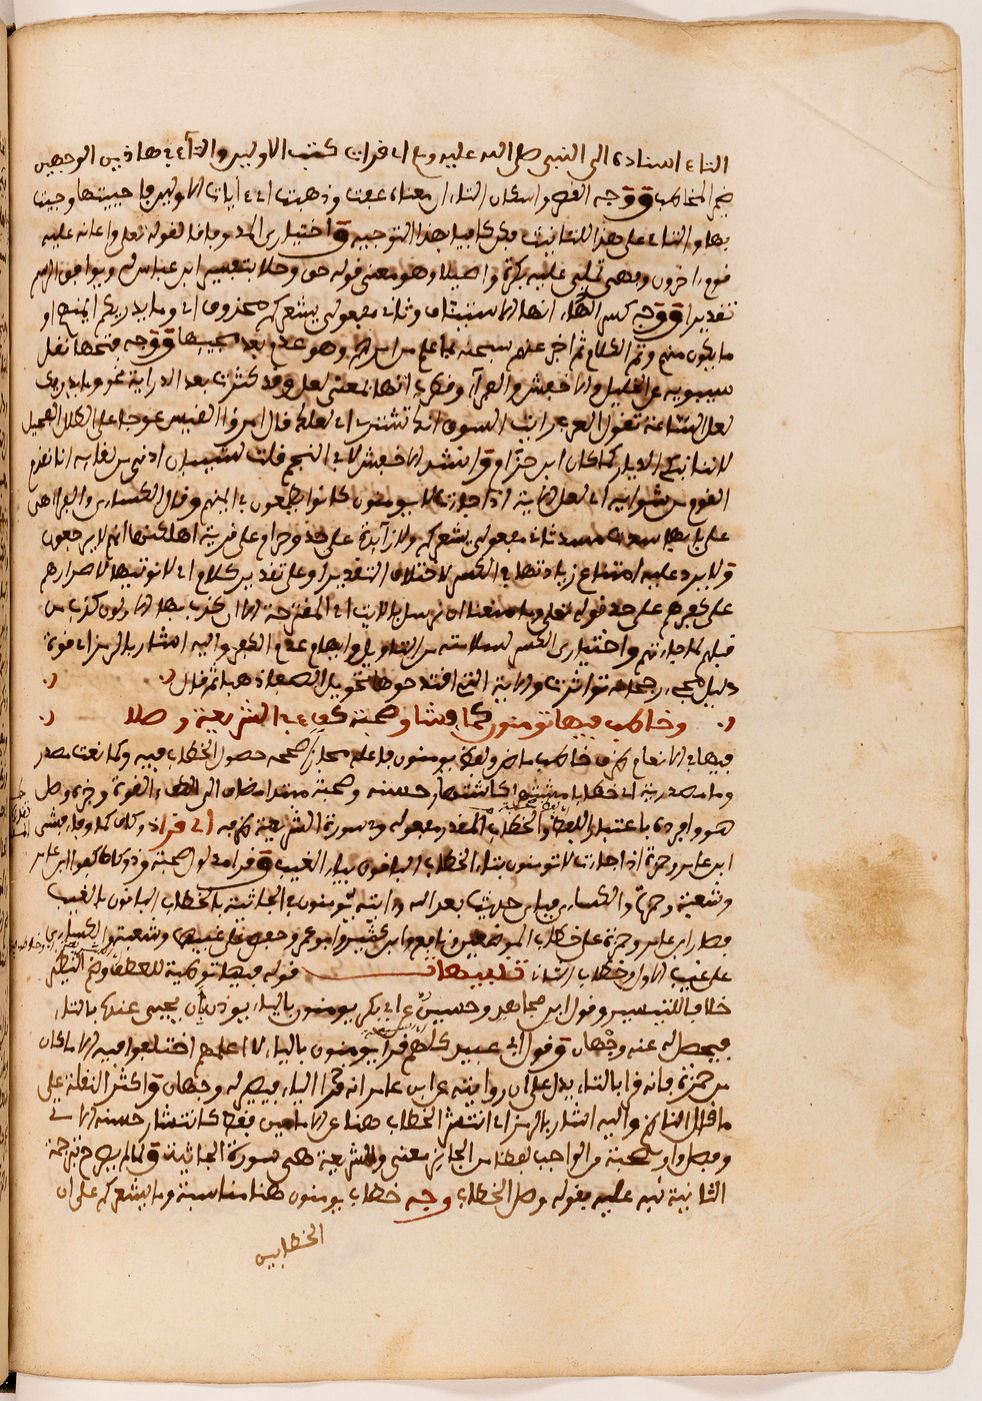 التاء اسناده الى النبي صلى الله عليه وسلم اي قرات كتب الاولين والتاء في هاذين الوجهين
ضمير المخاطب ووجه القصر واسكان التاء ان معناه عفت وذهبت اي ايات الاولين جيت
بها والتاء على هذا للتانيث بهذا التوجيه واختياري المد لقوله تعلى واعانه عليه
قوم اخرون وفهي تملى عليه بكرة واصيلا وهو معنى قوله ابن عباس ويوافق الرسم
تقديرا ووجه كسر انها انها الاستيناف وثاني مفعولي يشعركم محذوف اي وما يدريكم ايمنهم او
ما يكون منهم وتم الكلام ثم اخبر عنهم سبحنه بما علم من امرهم وهو عدم بعد مجيها ووجه فتحها نقل
سيبويه عن الخليل والاخفش والفراء انها بمعنى لعل وقد كثرت بعد الدراية نحو وما يدريك
لعل الساعة تقول العرب ايت السوق انك تشتري اي لعلك قال امرؤ القيس عوجا على الطلل المحيل
لاننا نبكي الديار كما بكى ابن حزام وانشد الاخفش لابي النجم قلت لشيبان ادن من لقايه انا نغدي
القوم من شوايه اي لعل الاية اذا جاءت لا يومنون كانوا يطمعون في ايمنهم وقال الكساءي والفراء هي
على بابها ثاني مفعولي يشعركم ولا زايدة على حد وحرام على قرية اهلكنها انهم لا يرجعون
ولا يرد عليه امتناع زيادتها في الكسر لاختلاف التقدير او على تقدير كلام اي لا نوتيها لاصرارهم
على كفرهم على حد قوله تعلى وما منعنا ان نرسل بالايت اي المقترحة الا ان كذب بها الاولون كذب من
قبلهم لما جاءتهم واختياري الكسر لسلامته من التاويل وايهام عدم الكفر واليه اشار بالرمز اي قوة
دليل تواترت والاية التي اقترحوها تحويل الصفا ذهبا ثم قال
وخاطب فيها تومنون كما فشا وصحبة كفؤ في الشريعة وصلا
فيها في الانعام ظرف خاطب ماض ولفظ يومنون فاعله مجازا صححه حصول الخطاب فيه وكما نعت مصدر
وما مصدرية اي خطابا حسنه وصحبة مبتدا مضاف الى والقوة وخبره وصل
هو وافرده باعتبار اللفظ والخطاب المقدر مفعوله وفي سورة الشريعة ظرفه اي قرا ذو كاف كما وفاء فشى
ابن عامر وحمزة اذا جاءت لا تومنون بتاء الخطاب الباقون بياء الغيب وقرا مدلول صحبة وذو كاف كفؤ ابن عامر
وشعبة وحمزة والكساءي فباي حديث بعد الله وايته تومنون في الجاثية بالخطاب الباقون بالغيب
فصار ابن عامر وحمزة على خطاب الموضعين ونافع وابن كثير وابو عمرو وحفص على غيبهما وشعبة والكساءي
على غيب الاول وخطاب الثاني تنبيهات قوله فيها توطية للعطف وضم النظير
خلافا للتيسير وقول ابن مجاهد وحسين عن ابي بكر يومنون بالياء يوذن بان يحيى عنه بالتاء
فيحصل له عنه وجهان وقول ابي عبيد كلهم قرا يومنون بالياء لا اعلمهم اختلفوا فيه الا ما كان
من حمزة فانه قرا بالتاء يدل على ان روايته عن ابن عامر انه قرا بالياء فيصير له وجهان واكثر النقلة على
ما قال الناظم واليه اشار بالرمز اي انتشر الخطاب هنا عن الامامين فقط كانتشار حسنه الاتي
وفصل اول صحبة من الواجب لفظا من الجايز معنى والشريعة هي سورة الجاثية ولما لم يصرح بترجمة
الثانية نبه عليه بقوله وصل الخطاب وجه خطاب يومنون هنا مناسبة وما يشعركم على ان
الخطابين